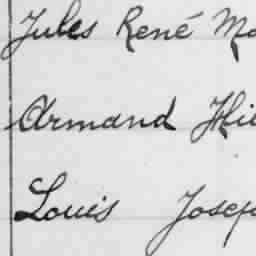 Jules René Ma
Armand Hil
Louis Josep